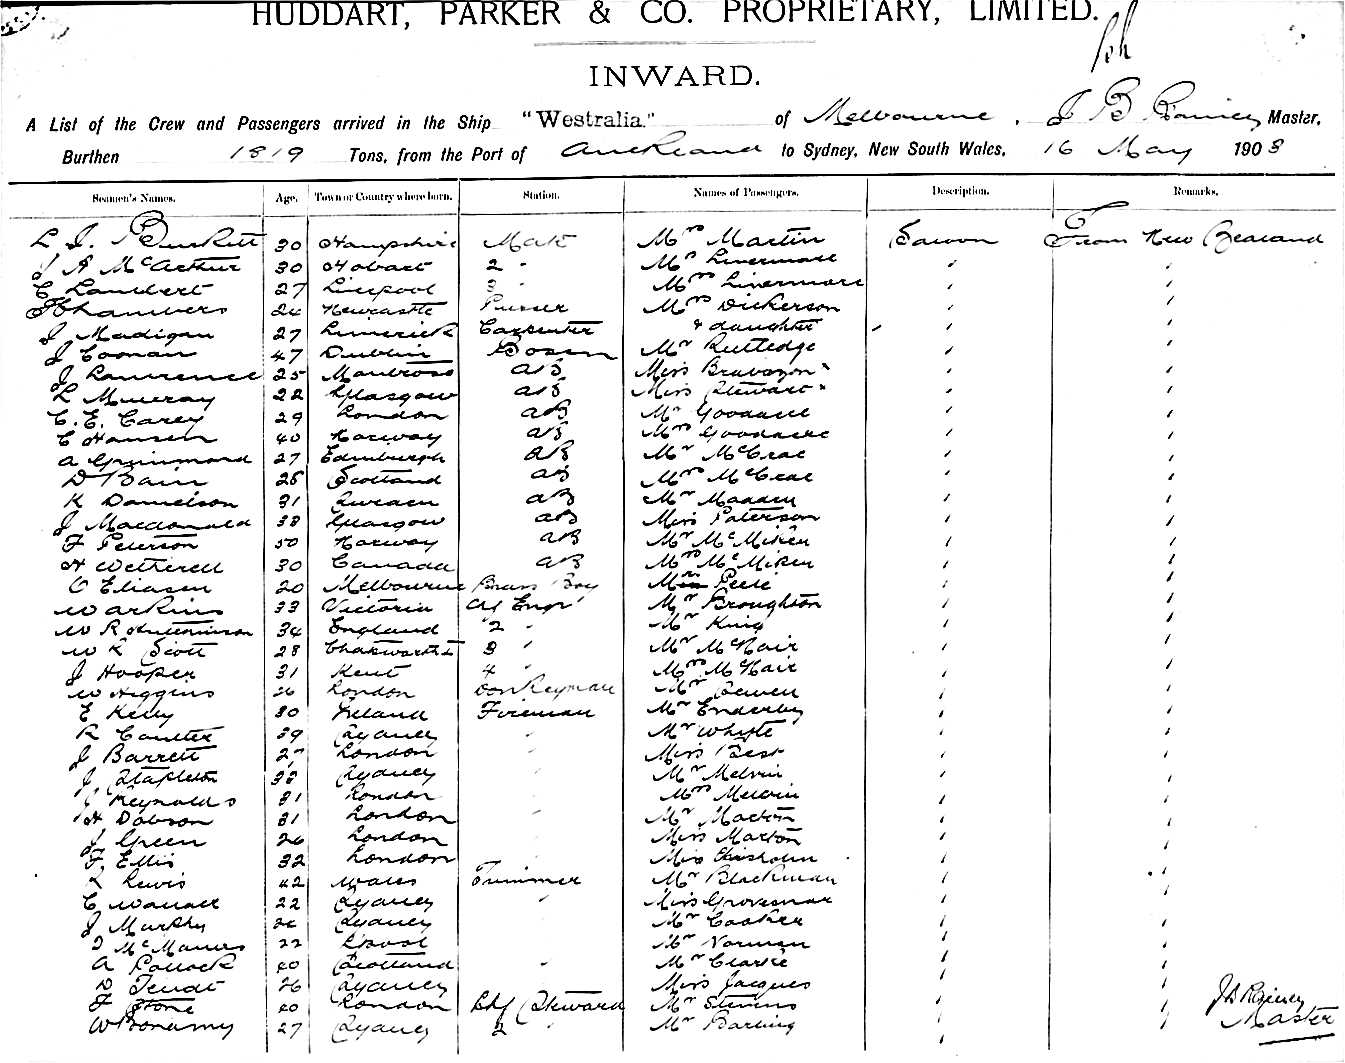 HUDDART, PARKER & CO. PROPRIETARY, LIMITED.
INWARD.
A List of the Crew and Passengers arrived in the Ship "Westralia." of Melbourne, J B Rainey Master,
Burthen 1819 Tons, from the Port of Auckland to Sydney, New South Wales, 16 May 1903
Seamen's Names. Age. Town or Country where born. Station. Names of Passengers. Description. Remarks.
L J. Burkett 30 Hampshire Mate Mrs Martin Saloon From New Zealand
J A McArthur 30 Hobart 2 " Mr Livermore " "
C Lambert 27 Liverpool 3 " Mrs Livermore " "
Chambers 24 Newcastle Purser Mrs Dickerson " "
J Madigan 27 Limerick Carpenter & daughter " "
J Coonan 47 Dublin Bosun Mr Rutledge " "
J Lawrence 25 Montrose AB Miss Brabazon " "
L Murray 22 Glasgow AB Miss Stewart " "
C. E. Carey 29 London AB Mr Goodacre " "
C Hansen 40 Norway AB Mrs Goodacre " "
A Grimmond 27 Edinburgh AB Mr McCrae " "
D Bain 25 Scotland AB Mrs McCrae " "
K Danielson 31 Sweden AB Mr Madden " "
J Macdonald 38 Glasgow AB Miss Paterson " "
F Peterson 50 Norway AB Mr McMiken " "
H Wetherell 30 Canada AB Mrs McMiken " "
O Eliasen 20 Melbourne Brass Boy Peele " "
W Arkins 33 Victoria Engr Mr Broughton " "
W R Hutchinson 34 England 2 " Mr King " "
W L Scott 28 3 " Mr McNair " "
J Hooper 31 Kent 4 " Mrs McNair " "
W Higgins 26 London Donkeyman Mr " "
E Kelly 30 Ireland Fireman Mr Enderby " "
R Coulter 39 Sydney " Mr Whyte " "
J Barrett 27 London " Miss Best " "
J. Stapleton 38 Sydney " Mr Melvin " "
J Reynolds 31 London " Mrs Melvin " "
H Dobson 31 London " Mr Marton " "
J. Green 26 London " Miss Marton " "
F. Ellis 32 London " Miss Chisholm " "
Lewis 42 Wales Trimmer Mr Blackman " "
C Wallace 22 Sydney " Miss Grosvenor " "
J Murphy 26 Sydney Mr Cooker " "
McManus 22 L'pool Mr Norman " "
A Pollock 40 Scotland " Mr Clarke " "
D 26 Sydney Miss Jacques " "
F Stone 40 London Chf Steward Mr Stevens " "
W Bonamy 27 Sydney 2 " Mr Barling " "
J B Rainey
Master